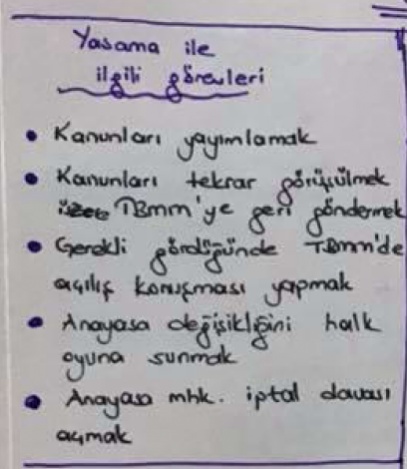 Yasama ile
ilgili görevleri
• Kanunları yayımlamak
• Kanunları tekrar görüşülmek
üzere TBMM'ye geri göndermek
• Gerekli gördüğünde TBMM'de
açılış konuşması yapmak
• Anayasa değişikliğini halk
oyuna sunmak
• Anayasa mhk. iptal davası
açmak